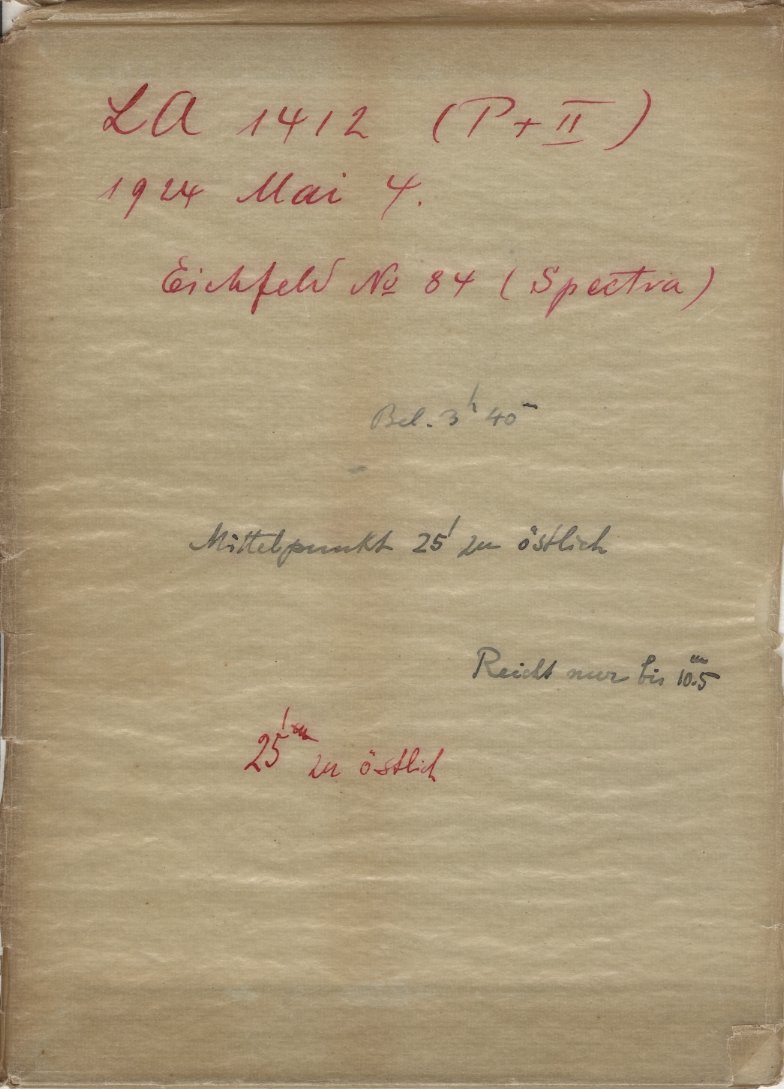 LA 1412 (P+II)
1924 Mai 4.
Eichfeld No 84 (Spectra)
Bel. 3ʰ 40ᵐ
Mittelpunkt 25' zu östlich
Reicht nur bis 10.5ᵐ
25' zu östlich